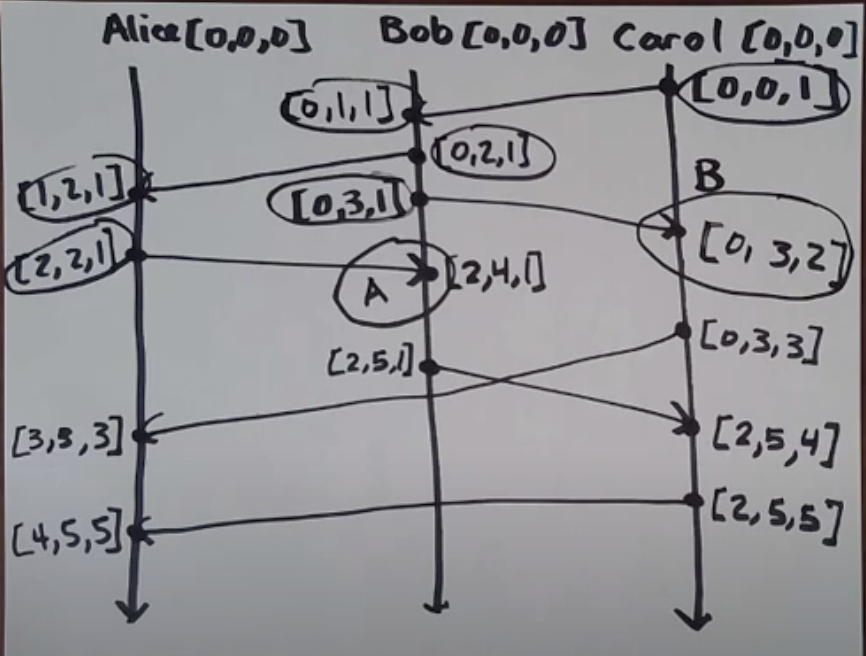 Alice [0,0,0] Bob [0,0,0] Carol [0,0,0]
[0,1,1] [0,0,1]
[0,2,1]
[1,2,1] [0,3,1] B
[2,2,1] A [2,4,1] [0,3,2]
[0,3,3]
[2,5,1]
[3,3,3] [2,5,4]
[4,5,5] [2,5,5]